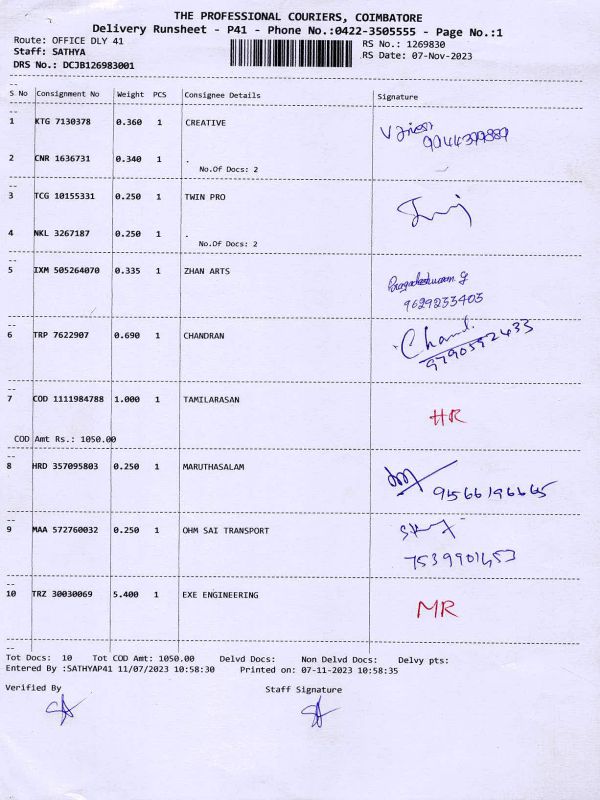 THE PROFESSIONAL COURIERS, COIMBATORE
Delivery Runsheet - P41 - Phone No.:0422-3505555 - Page No.:1
Route: OFFICE DLY 41 RS No.: 1269830
Staff: SATHYA RS Date: 07-Nov-2023
DRS No.: DCJB126983001
S No Consignment No Weight PCS Consignee Details Signature
1 KTG 7130378 0.360 1 CREATIVE
2 CNR 1636731 0.340 1 .
No.Of Docs: 2
3 TCG 10155331 0.250 1 TWIN PRO
4 NKL 3267187 0.250 1 .
No.Of Docs: 2
5 IXM 505264070 0.335 1 ZHAN ARTS
9629233403
6 TRP 7622907 0.690 1 CHANDRAN
Chand.
9790592433
7 COD 1111984788 1.000 1 TAMILARASAN
HR
COD Amt Rs.: 1050.00
8 HRD 357095803 0.250 1 MARUTHASALAM
9566196665
9 MAA 572760032 0.250 1 OHM SAI TRANSPORT
7539901453
10 TRZ 30030069 5.400 1 EXE ENGINEERING
MR
Tot Docs: 10 Tot COD Amt: 1050.00 Delvd Docs: Non Delvd Docs: Delvy pts:
Entered By :SATHYAP41 11/07/2023 10:58:30 Printed on: 07-11-2023 10:58:35
Verified By Staff Signature